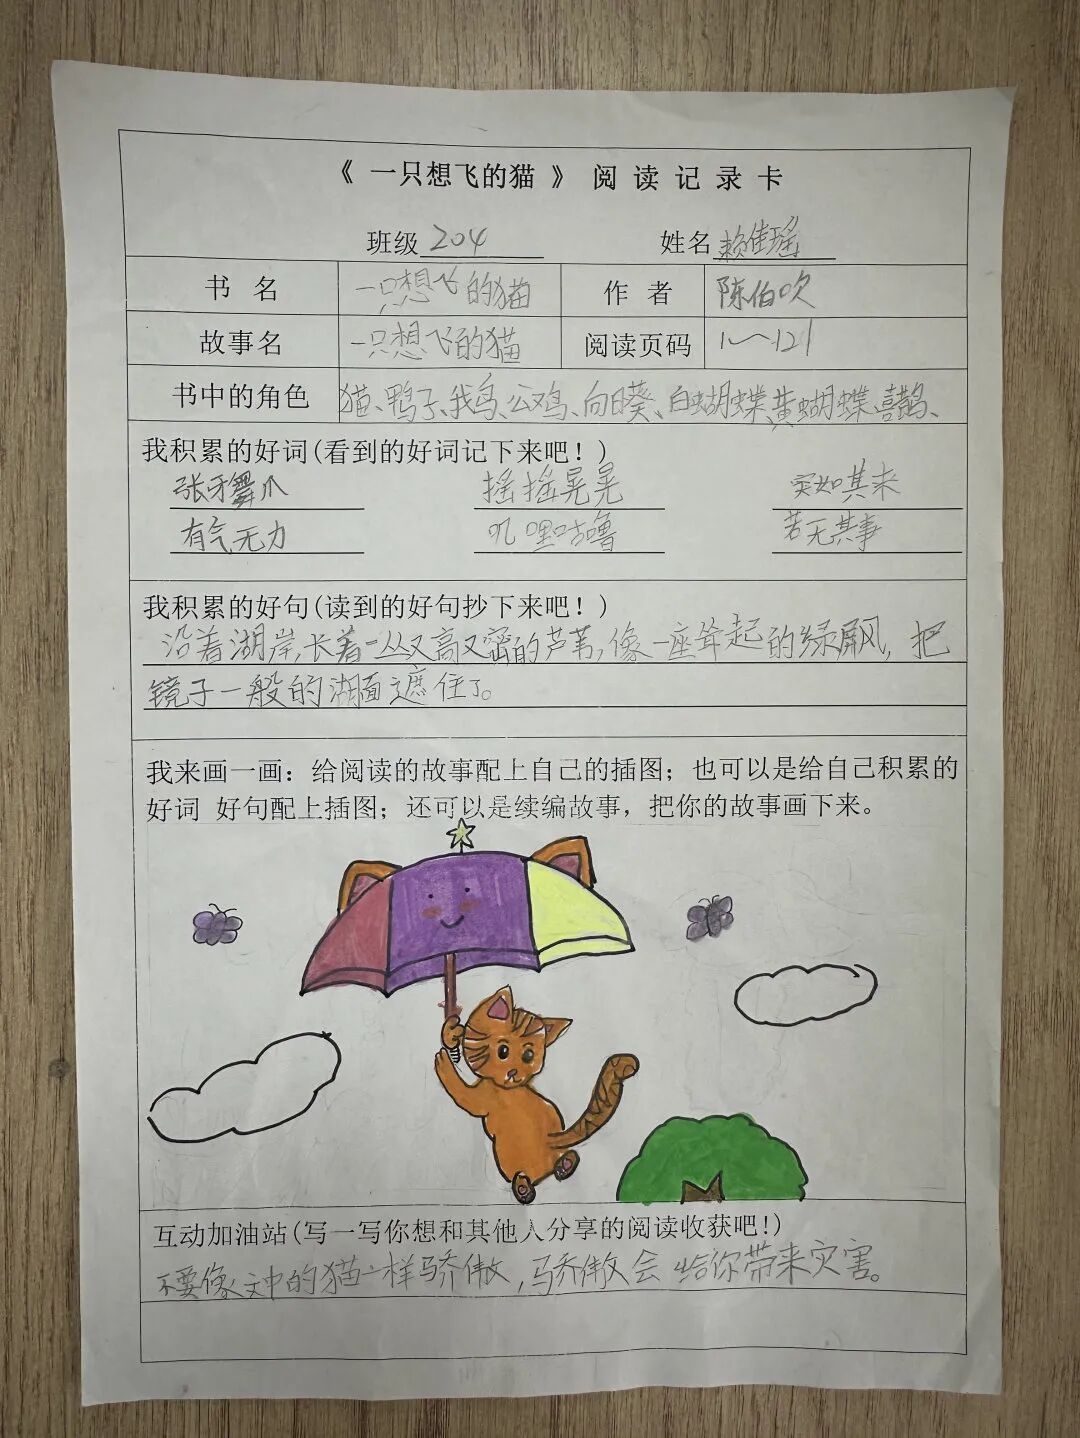 《 一只想飞的猫 》 阅 读 记 录 卡
班级 204 姓名 赖佳瑶
书 名 一只想飞的猫 作 者 陈伯吹
故事名 一只想飞的猫 阅读页码 1~121
书中的角色 猫、鸭子、我鸟、公鸡、向日葵、白蝴蝶、黄蝴蝶、喜鹊、
我积累的好词(看到的好词记下来吧！)
张牙舞爪 摇摇晃晃 突如其来
有气无力 叽哩咕噜 若无其事
我积累的好句(读到的好句抄下来吧！)
沿着湖岸,长着一丛又高又密的芦苇,像一座耸起的绿屏风,把
镜子一般的湖面遮住了。
我来画一画：给阅读的故事配上自己的插图；也可以是给自己积累的
好词 好句配上插图；还可以是续编故事，把你的故事画下来。
互动加油站(写一写你想和其他人分享的阅读收获吧!)
不要像文中的猫一样骄傲,骄傲会给你带来灾害。